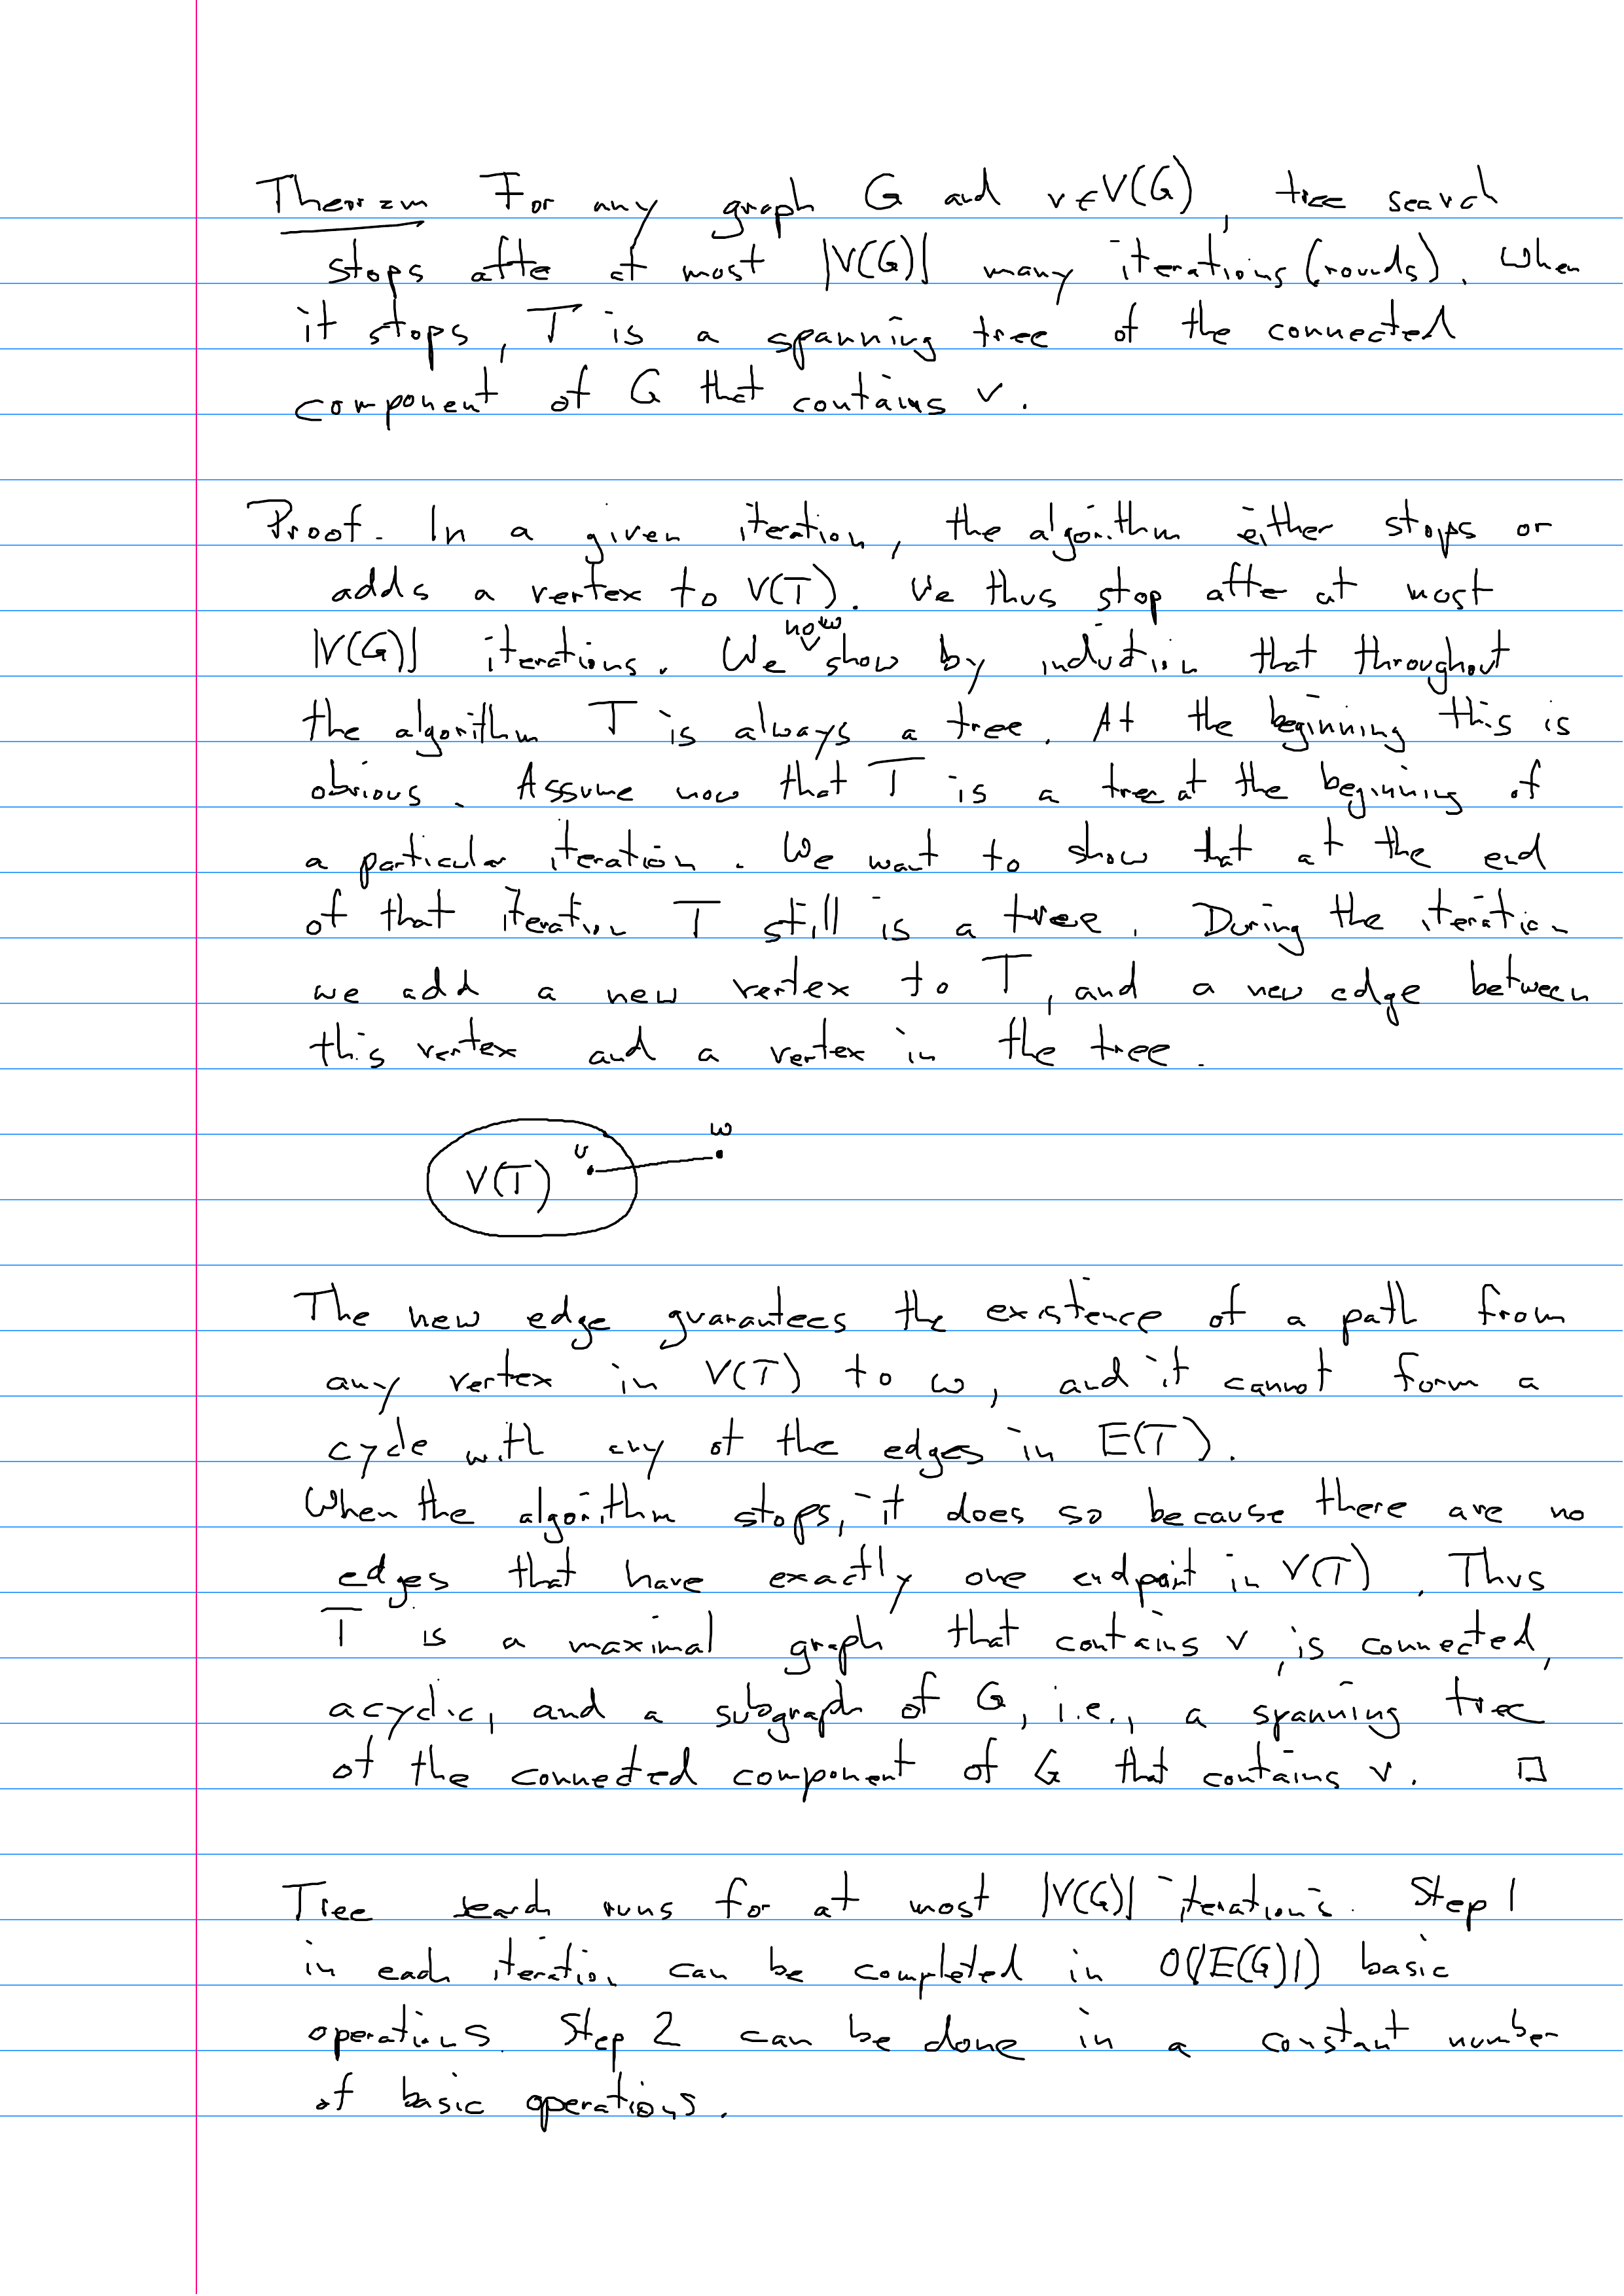 Theorem For any graph G and v∈V(G), tree search
stops after at most |V(G)| many iterations (rounds). When
it stops, T is a spanning tree of the connected
component of G that contains v.
Proof. In a given iteration, the algorithm either stops or
adds a vertex to V(T). We thus stop after at most
|V(G)| iterations. We now show by induction that throughout
the algorithm T is always a tree. At the beginning this is
obvious. Assume now that T is a tree at the beginning of
a particular iteration. We want to show that at the end
of that iteration T still is a tree. During the iteration
we add a new vertex to T, and a new edge between
this vertex and a vertex in the tree.
V(T) u w
The new edge guarantees the existence of a path from
any vertex in V(T) to w, and it cannot form a
cycle with any of the edges in E(T).
When the algorithm stops, it does so because there are no
edges that have exactly one endpoint in V(T). Thus
T is a maximal graph that contains v, is connected,
acyclic, and a subgraph of G, i.e., a spanning tree
of the connected component of G that contains v. □
Tree search runs for at most |V(G)| iterations. Step 1
in each iteration can be completed in O(|E(G)|) basic
operations. Step 2 can be done in a constant number
of basic operations.